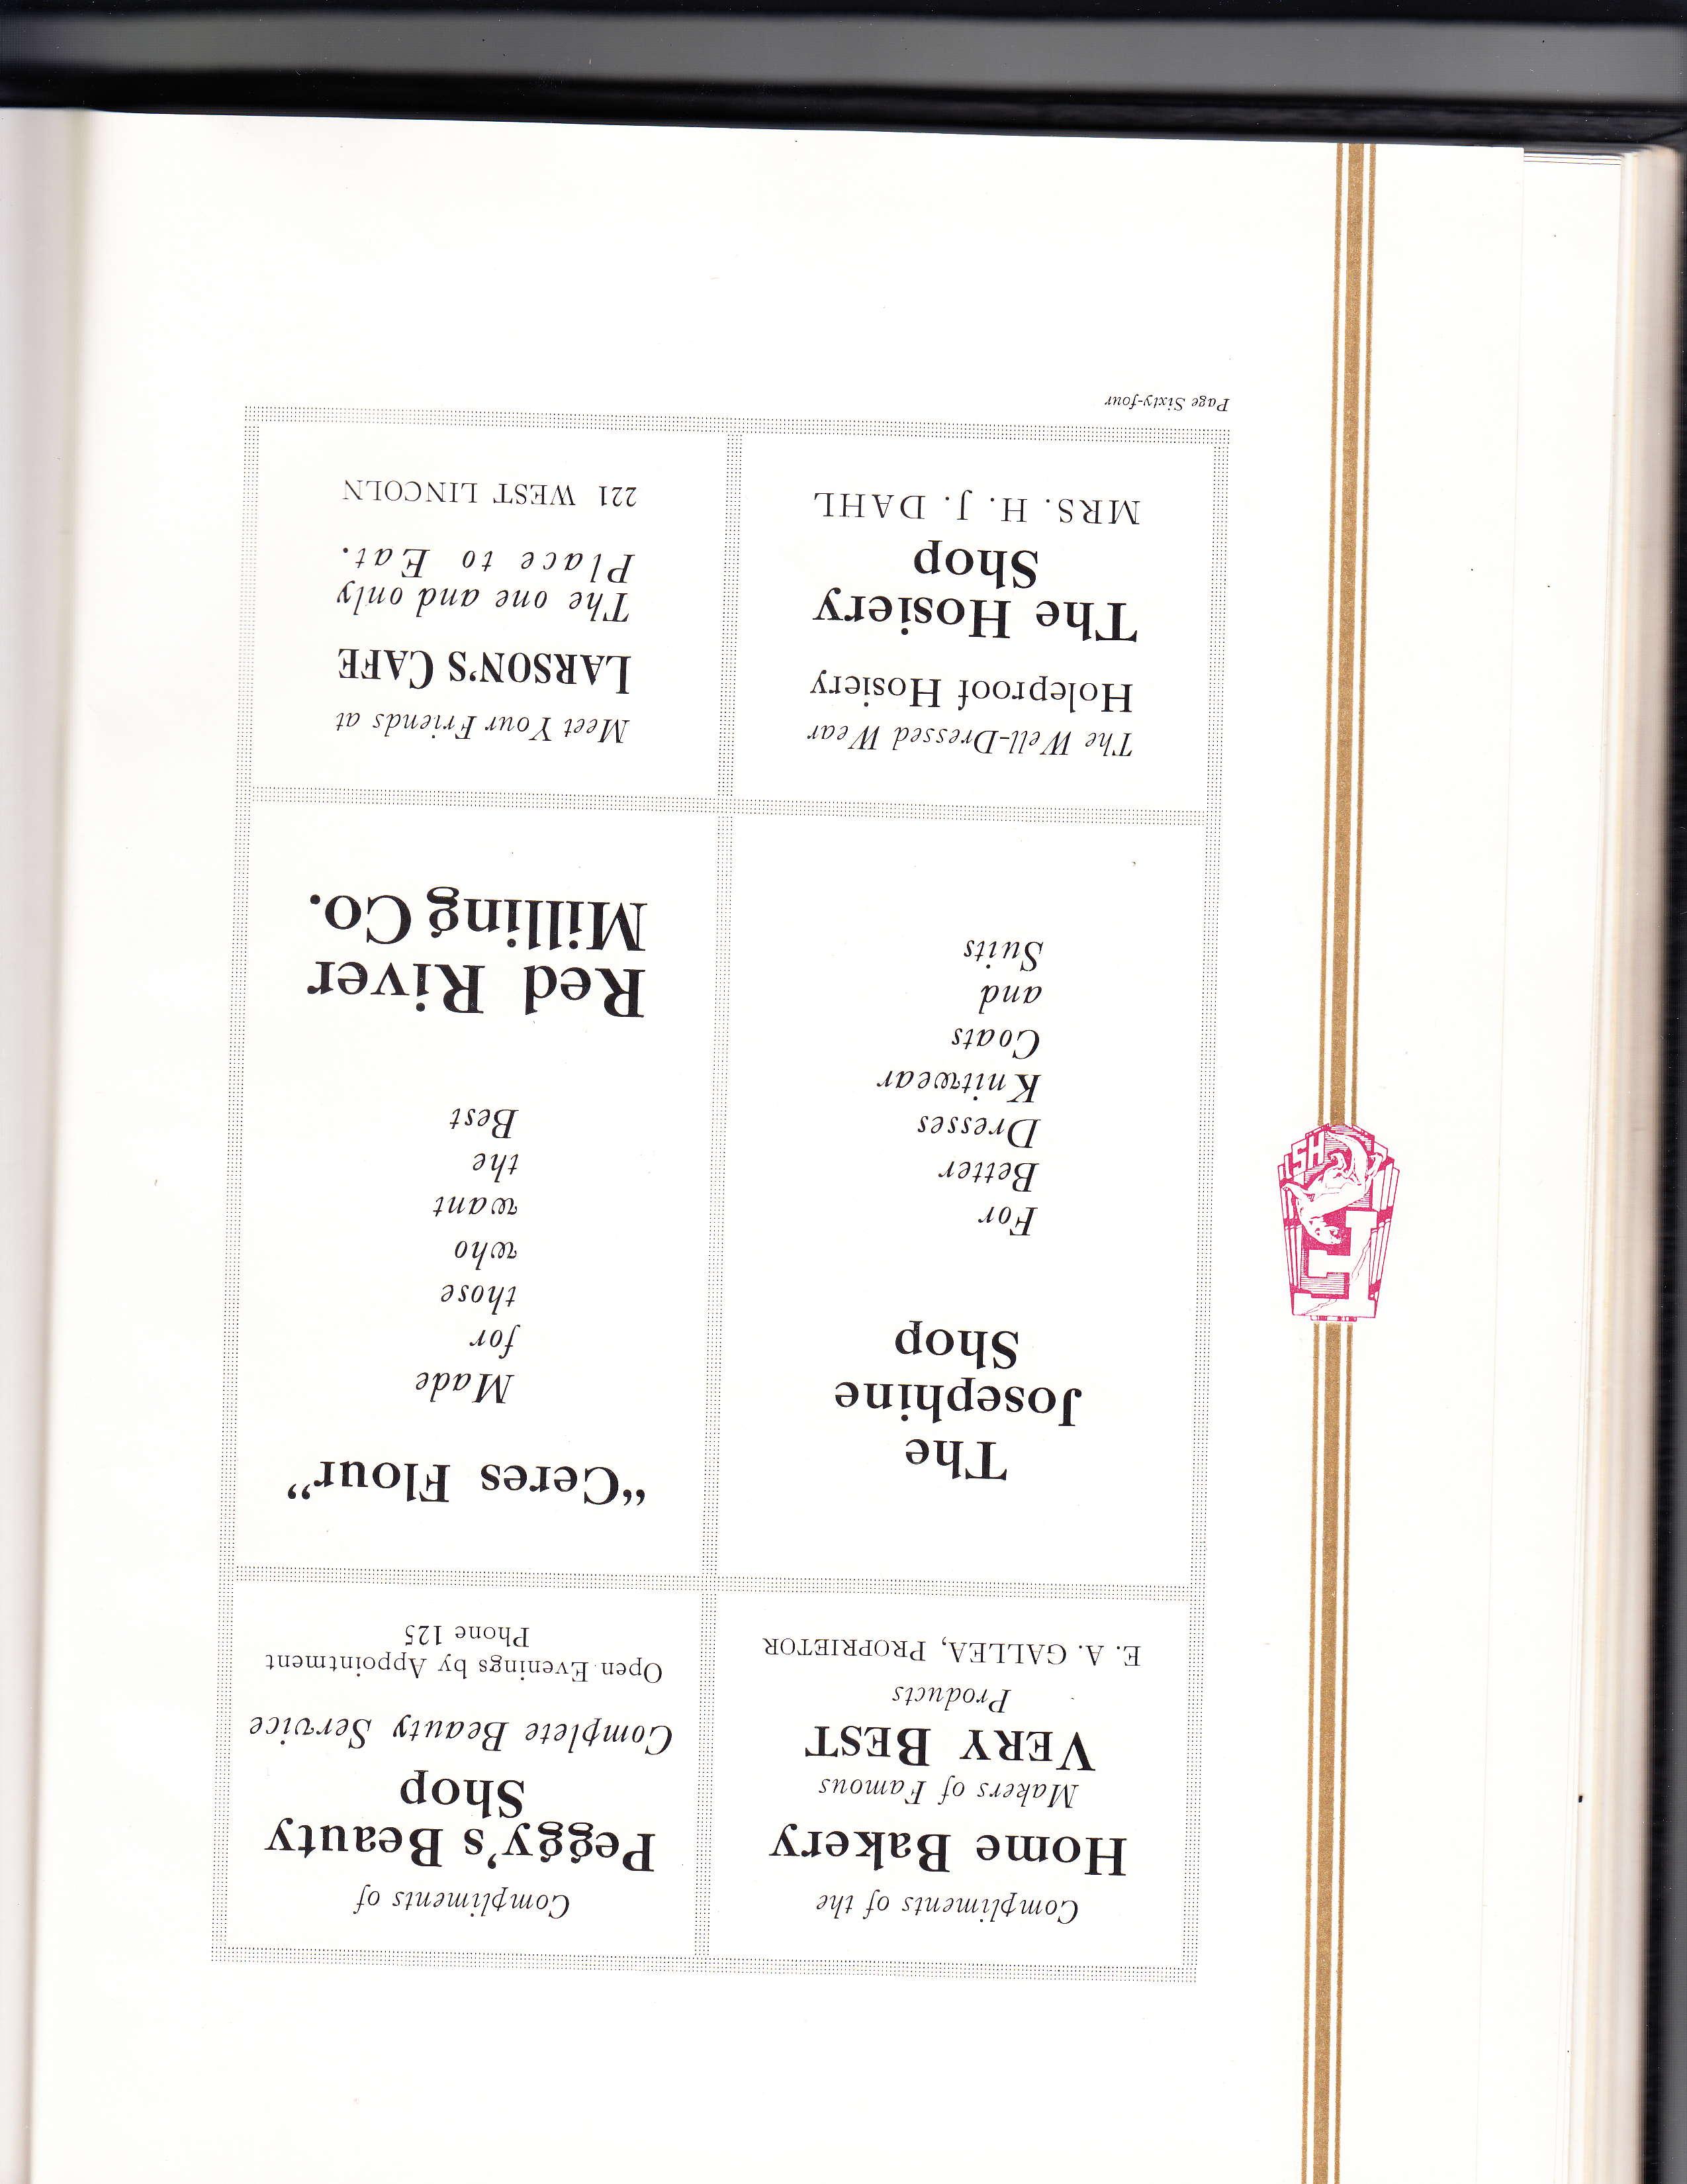 Compliments of the
Home Bakery
Makers of Famous
VERY BEST
Products
E. A. GALLEA, PROPRIETOR
Compliments of
Peggy's Beauty
Shop
Complete Beauty Service
Open Evenings by Appointment
Phone 125
The
Josephine
Shop
For
Better
Dresses
Knitwear
Coats
and
Suits
“Ceres Flour”
Made
for
those
who
want
the
Best
Red River
Milling Co.
The Well-Dressed Wear
Holeproof Hosiery
The Hosiery
Shop
MRS. H. J. DAHL
Meet Your Friends at
LARSON'S CAFE
The one and only
Place to Eat.
221 WEST LINCOLN
Page Sixty-four
F
SH